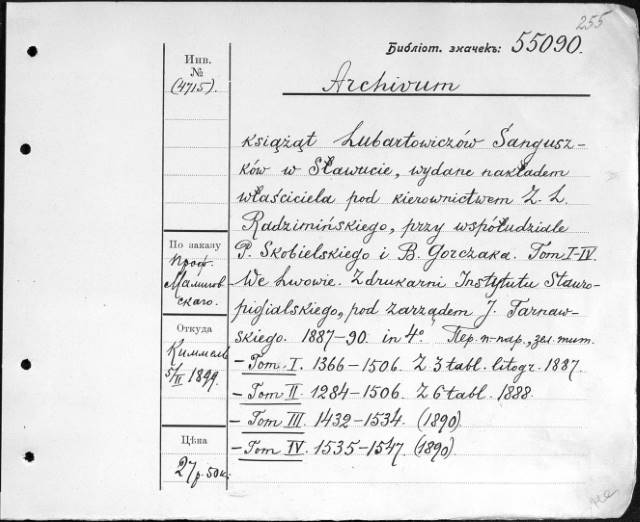 255
Библіот. значекъ: 55090.
Archivum
książąt Lubartowiczów Sangusz-
ków w Sławucie, wydane nakładem
właściciela pod kierownictwem Z. L.
Radzimińskiego, przy współudziale
P. Skobielskiego i B. Gorczaka. Tom I-IV.
We Lwowie. Z drukarni Instytutu Stauro-
pigialskiego, pod zarządem J. Tarnaw-
skiego. 1887-90. in 4º. Пер. п-пар., зел. тит.
- Tom I. 1366-1506. Z 3 tabl. litogr. 1887.
- Tom II. 1284-1506. Z 6 tabl. 1888.
- Tom III. 1432-1534. (1890).
- Tom IV. 1535-1547. (1890).
Инв.
№
(4715).
По заказу
Проф.
Малинов-
скаго.
Откуда
Киммель
5/II 1899.
Цѣна
27 р. 50 к.